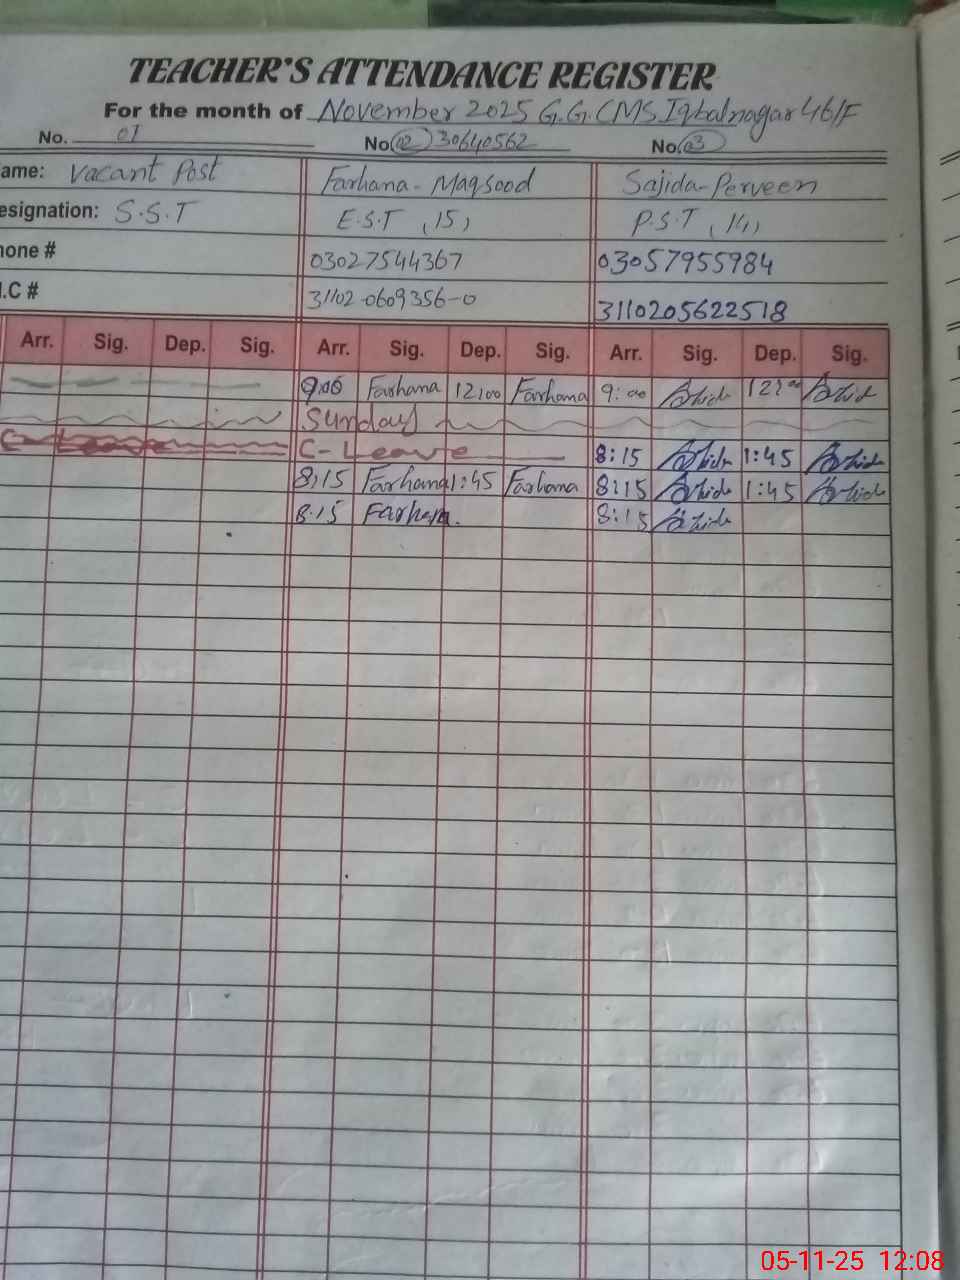 TEACHER'S ATTENDANCE REGISTER
For the month of November 2025 G.G.CMS.Iqbalnagar 46/F
No. 01 No. 02 30640562 No. 03
ame: Vacant Post Farhana-Maqsood Sajida-Perveen
esignation: S.S.T E.S.T (15) P.S.T (14)
hone # 03027544367 03057955984
.C # 31102-0609356-0 3110205622518
Arr. Sig. Dep. Sig. Arr. Sig. Dep. Sig. Arr. Sig. Dep. Sig.
9:00 Farhana 12:00 Farhana 9:00 12:00
Sunday
C-Leave C-Leave 8:15 1:45
8:15 Farhana 1:45 Farhana 8:15 1:45
8:15 Farhana 8:15
05-11-25 12:08